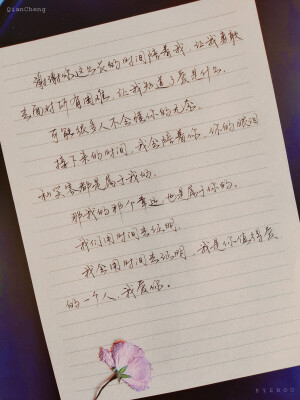 QianCheng
谢谢你这么长的时间陪着我，让我勇敢
去面对所有困难，让我知道了爱是什么。
可能很多人不会懂你的无奈。
接下来的时间，我会陪着你，你的眼泪
和笑容都是属于我的。
那我的那个幸运也是属于你的。
我们用时间去证明。
我会用时间去证明，我是你值得爱
的一个人，我爱你。